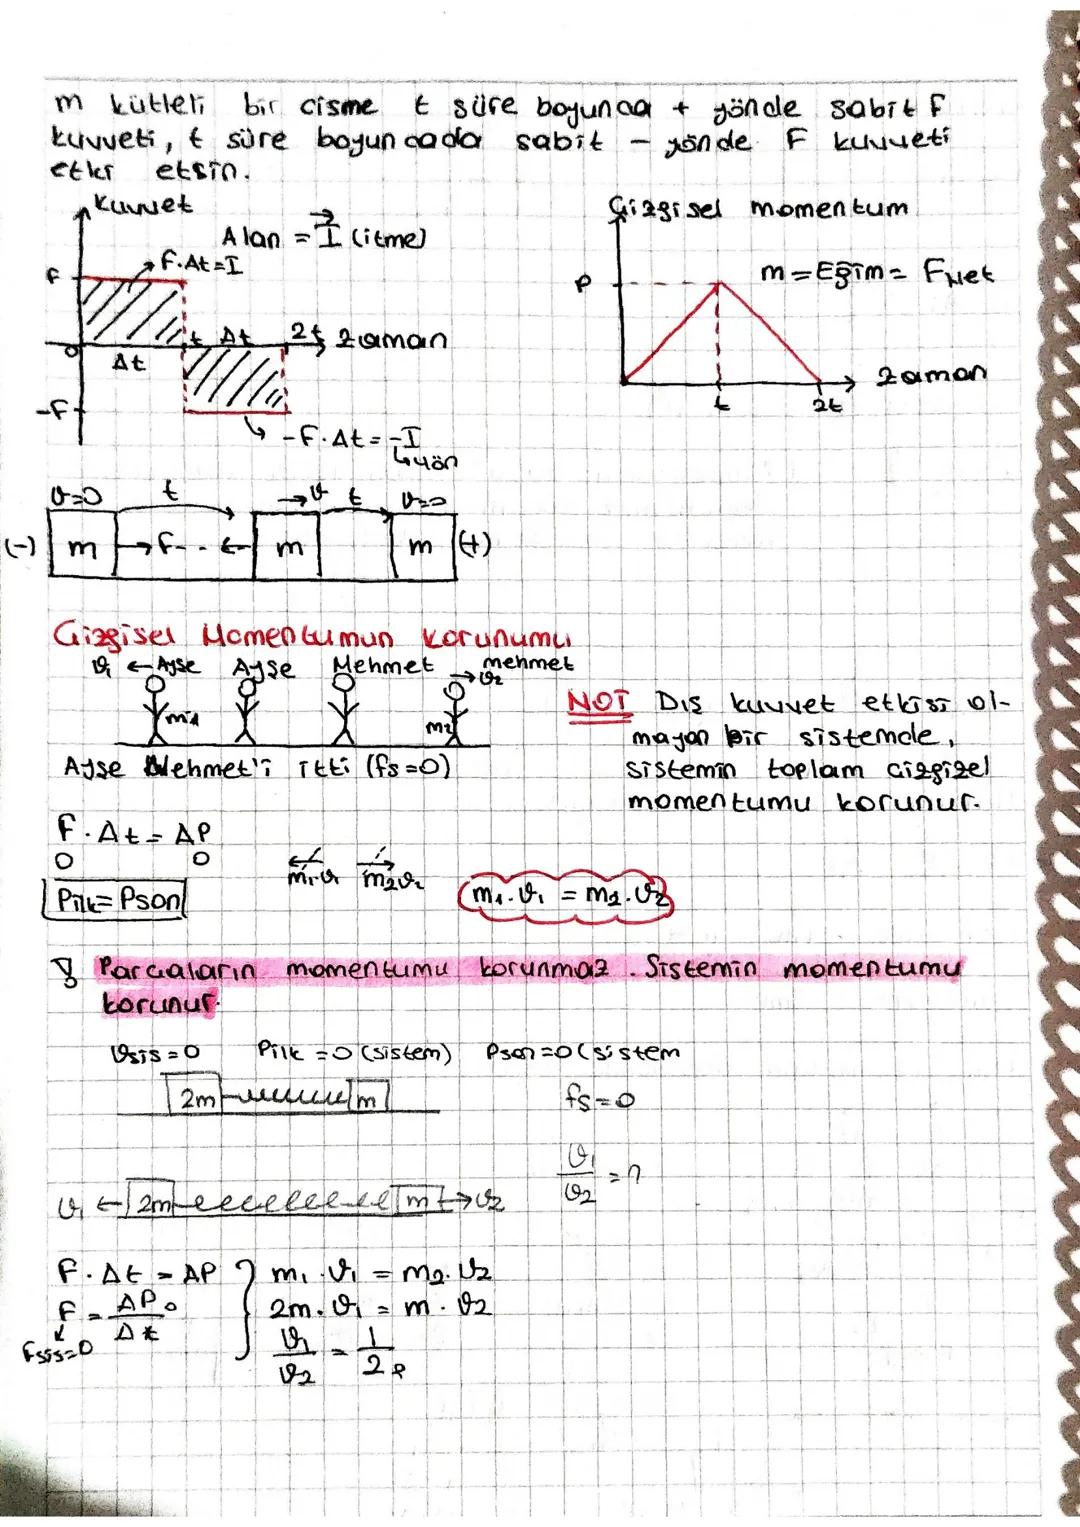 m kütleli bir cisme t süre boyunca + yönde sabit F
kuvveti, t süre boyuncada sabit - yönde F kuvveti
etki etsin.
Kuvvet
Alan = I (itme)
F.Δt=I
F
0
Δt
t
Δt
2t
zaman
-F
-F.Δt = -I
↳yön
Çizgisel momentum
P
m=Eğim= FNet
zaman
t
2t
ϑ=0
t
→ϑ
t
ϑ=0
(-)
m
→F
←
m
m
(+)
Çizgisel Momentumun Korunumu
ϑ₁ ← Ayşe
Ayşe
Mehmet
mehmet
→ϑ₂
m₁
m₂
Ayşe Mehmet'i itti (fs=0)
NOT Dış kuvvet etkisi ol-
mayan bir sistemde,
sistemin toplam çizgizel
momentumu korunur.
F.Δt = ΔP
0
0
Pilk=Pson
m₁.ϑ
m₂ϑ₂
m₁.ϑ₁ = m₂.ϑ₂
Parçaların momentumu korunmaz. Sistemin momentumu
korunur.
ϑsis=0 Pilk=0(sistem) Pson=0(sistem
2m
m
fs=0
ϑ₁/ϑ₂ = ?
ϑ₁ ←
2m
m
→ϑ₂
F.Δt = ΔP
m₁.ϑ₁ = m₂.ϑ₂
F = ΔP/Δt
0
2m.ϑ₁ = m.ϑ₂
Fsis=0
ϑ₁/ϑ₂ = 1/2